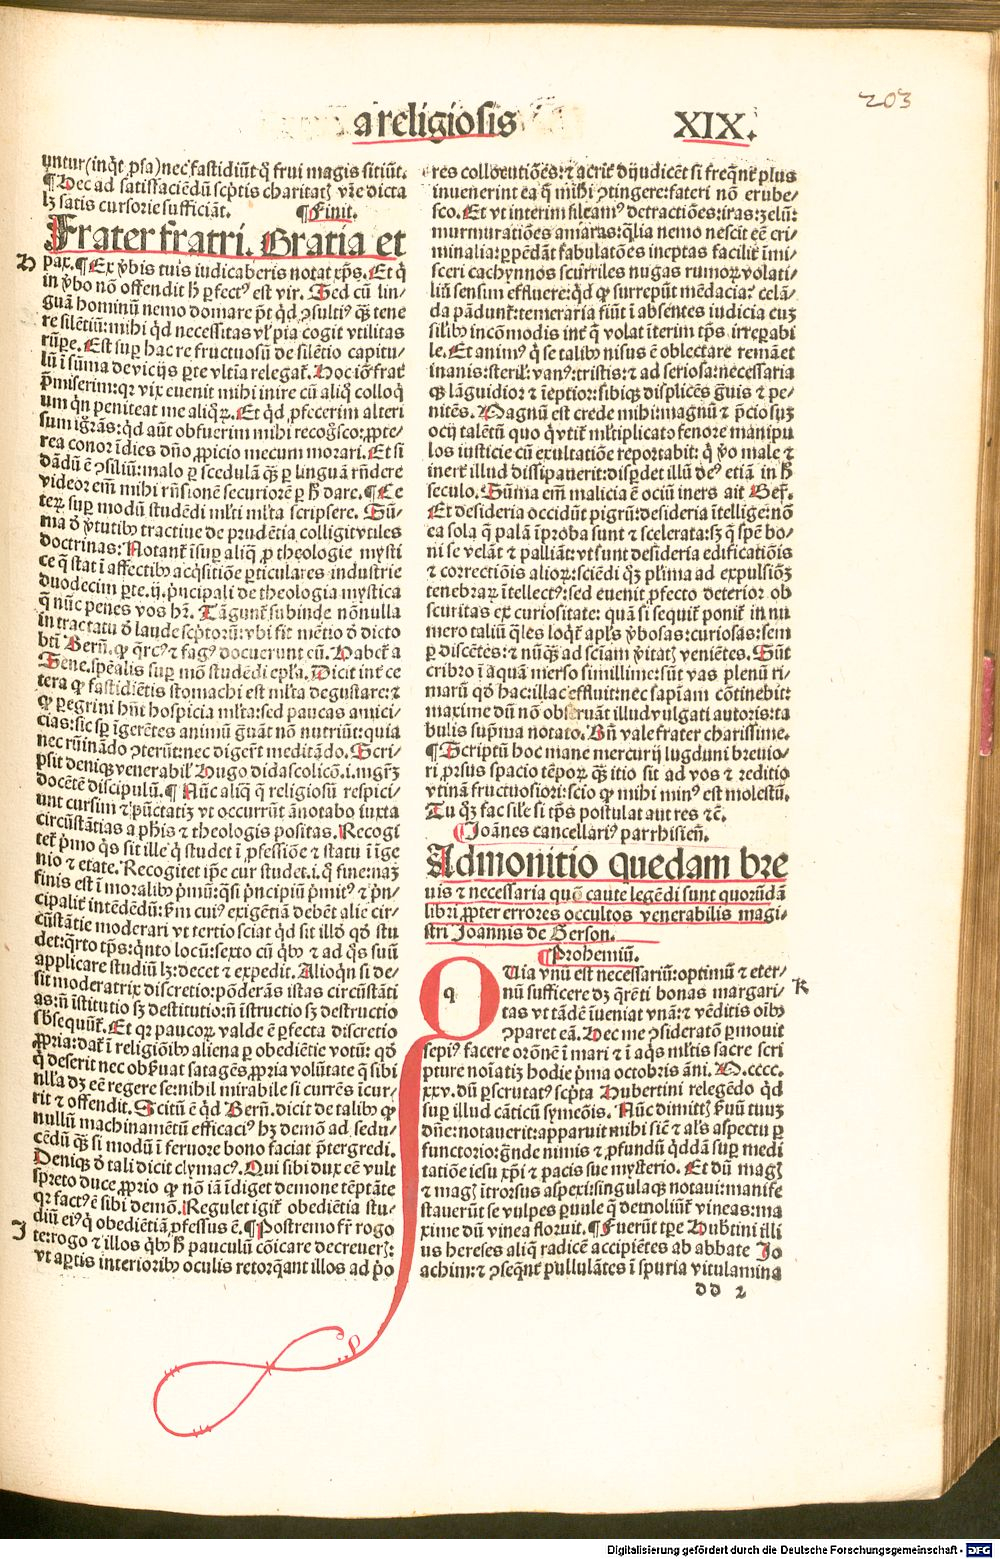 203
a religiosis XIX.
untur (inq̄t ꝑsa) nec fastidiūt q̄ frui magis sitiūt.
¶ Hec ad satisfaciēdū scptis charitatꝭ vr̄e dicta
lꝫ satis cursorie sufficiāt. ¶ Finit.
Frater fratri. Gratia et
H pax. ¶ Ex v̄bis tuis iudicaberis notat xp̄s. Et q̄
in v̄bo nō offendit h̄ ꝑfectꝰ est vir. Sed cū lin⸗
guā hominū nemo domare p̄t qd̄ ꝯsultiꝰ qꝫ tene
re silētiū: mihi qd̄ necessitas vl̓ pia cogit vtilitas
rūꝑe. Est suꝑ hac re fructuosū de silētio capitu⸗
lū ī sūma de vicijs ꝑte vltīa relegat̄. Hoc iō frat̄
p̄miserim: qꝛ vix euenit mihi inire cū aliq̄ colloq̄
um qn̄ peniteat me aliqꝝ. Et qd̄ ꝓfecerim alteri
sum igrās: qd̄ aūt obfuerim mihi recog̓sco: ꝓpte⸗
rea conor īdies dn̄o ꝓpicio mecum morari. Et si
dādū ē ꝯsiliū: malo ꝑ scedulā qꝫ ꝑ linguā rn̄dere
videor em̄ mihi rn̄sionē securiorē ꝑ h̄ dare. ¶ Ce
teꝝ suꝑ modū studēdi ml̓ti ml̓ta scripsere. Sū⸗
ma d̓ v̓tutibꝰ tractiue de prudētia colligit vtiles
doctrinas: Notant̄ īsuꝑ aliq̄ ꝓ theologie mysti
ce q̄ stat ī affectibꝰ acq̄sitiōe ꝑticulares industrie
duodecim ꝑte .ij. pͥncipali de theologia mystica
q̄ nūc penes vos hr̄. Tāgunt̄ subinde nōnulla
in tractatu d̓ laude scp̄torū: vbi fit mētio d̓ dicto
btī Bern̄. ꝙ q̄rcꝰ ⁊ fagꝰ docuerunt eū. Habet̄ a
Sene. sp̄ealis suꝑ mō studēdi epl̓a. Dicit int̄ ce
tera ꝙ fastidiētis stomachi est ml̓ta degustare: ⁊
ꝙ ꝑegrini hn̄t hospicia ml̓ta: sed paucas amici⸗
cias: sic sꝑ īgerētes animū g̓uāt nō nutriūt: quia
nec rūinādo ꝯterūt: nec digerūt meditādo. Scri⸗
psit deniqꝫ venerabil̓ Hugo didascolicō .i. mgr̄ꝫ
docētē discipulū. ¶ Nūc aliq̄ q̄ religiosū respici⸗
unt cursim ⁊ pūctatiꝫ vt occurrūt ānotabo iuxta
circūstātias a ph̄is ⁊ theologis positas. Recogi
tet̄ pͥmo qͥs sit ille q̄ studet ī ꝓfessiōe ⁊ statu ī ige
nio ⁊ etate. Recogitet ip̄e cur studet .i. q̄ fine: naꝫ
finis est ī moralibꝰ pͥmū: qͣsi pͥncipiū pͥmitꝰ ⁊ pͥn⸗
cipalit̄ intēdēdū: ẜm cuiꝰ exigētiā debēt alie cir⸗
cūstātie moderari vt tertio sciat qd̄ sit illō qd̄ stu
det: q̄rto tp̄s: q̄nto locū: sexto cū qͥbꝰ ⁊ ad qͦs suū
applicare studiū lꝫ: decet ⁊ expedit. Alioqͥn si de⸗
sit moderatrix discretio: pōderās istas circūstāti
as: nō īstitutio sꝫ destitutio: nō īstructio sꝫ destructio
sb̄sequūt̄. Et qꝛ paucoꝝ valde ē ꝑfecta discretio
ꝓpria: dat̄ ī religiōibꝰ aliena ꝑ obediētie votū: qd̄
q̄ deserit nec obẜuat satagēs ꝓpria volūtate q̄ sibi
nl̓la dꝫ eē regere se: nihil mirabile si currēs īcur⸗
rit ⁊ offendit. Scitū ē qd̄ Bern̄. dicit de talibꝰ ꝙ
nullū machinamētū efficaciꝰ hꝫ demō ad sedu⸗
cēdū qꝫ si modū ī feruore bono faciat p̄tergredi.
Deniqꝫ d̓ tali dicit clymacꝰ. Qui sibi dux eē vult
spreto duce ꝓprio ꝙ nō iā īdiget demone tēptāte
qꝛ factꝰ ē sibi demō. Regulet igit̄ obediētia stu⸗
I diū eiꝰ q̄ obediētiā ꝓfessus ē. ¶ Postremo fr̄ rogo
te: rogo ⁊ illos qͥbꝰ h̄ pauculū cōicare decreuerꝭ:
vt aꝑtis interioribꝰ oculis retorq̄ant illos ad pͥo
res colluentiōes: ⁊ acrit̄ dijudicēt si freqn̄t̄ plus
inuenerint ea q̄ mihi ꝯtingere: fateri nō erube⸗
sco. Et vt interim sileamꝰ detractiōes: iras: zelū:
murmuratiōes amaras: q̄lia nemo nescit eē cri⸗
minalia: ꝑpēdāt fabulatōes ineptas facilit̄ īmi⸗
sceri cachynnos scurriles nugas rumoꝝ volati⸗
liū sensim effluere: qd̄ ꝙ surrepūt mēdacia: celā⸗
da pādunt̄: temeraria fiūt ī absentes iudicia euꝫ
silibꝰ incōmodis int̄ q̄ volat īterim tp̄s irreꝑabi
le. Et animꝰ q̄ se talibꝰ nisus ē oblectare remāet
inanis: steril̓: vanꝰ: tristis: ⁊ ad seriosa: necessaria
qꝫ lāguidior ⁊ īeptior: sibiqꝫ displicēs g̓uis ⁊ pe⸗
nitēs. Magnū est crede mihi: magnū ⁊ p̄ciosuꝫ
ocij talētū quo qͥ vtit̄ ml̓tiplicato fenore manipu
los iusticie cū exultatiōe reportabit: q̄ v̓o male ⁊
inert̄ illud dissipauerit: disꝑdet illū deꝰ etiā in h̄
seculo. Sūma em̄ malicia ē ociū iners ait Bef.
Et desideria occidūt pigrū: desideria ītellige: nō
ea sola q̄ palā īproba sunt ⁊ scelerata: sꝫ q̄ spē bo⸗
ni se velāt ⁊ palliāt: vt sunt desideria edificatiōis
⁊ correctiōis alioꝝ: sciēdi qꝫ pl̓ima ad expulsiōꝫ
tenebraꝝ ītellectꝰ: sed euenit ꝓfecto deterior ob
scuritas ex curiositate: quā si sequit̄ ponit̄ in nu
mero taliū q̄les loqͥt̄ apl̓s v̓bosas: curiosas: sem
ꝑ discētes: ⁊ nūqꝫ ad sciam v̓itatꝭ veniētes. Sūt
cribro ī aquā merso simillime: sūt vas plenū ri⸗
marū qd̄ hac: illac effluit: nec sapīam cōtinebit:
maxime dū nō obseruāt illud vulgati autoris: ta
bulis supͥma notato. Bn̄ vale frater charissime.
¶ Scriptū hoc mane mercurij lugduni breuio⸗
ri ꝓrsus spacio tēpoꝝ qꝫ itio sit ad vos ⁊ reditio
vtinā fructuosiori: scio ꝙ mihi minꝰ est molestū.
Tu qꝫ fac sil̓e si tp̄s postulat aut res ⁊c̄.
¶ Joānes cancellariꝰ parrhisien̄.
Admonitio quedam bre
uis ⁊ necessaria quō caute legēdi sunt quorūdā
libri ꝓpter errores occultos venerabilis magi⸗
stri Joannis de Gerson.
¶ Prohemiū.
Q q Uia vnū est necessariū: optimū ⁊ eter⸗ K
nū sufficere dꝫ q̄rēti bonas margari⸗
tas vt tādē īueniat vnā: ⁊ vēditis oībꝰ
ꝯparet eā. Hec me ꝯsideratō ꝑmouit
sepiꝰ facere orōnē ī mari ⁊ ī aqͥs ml̓tis sacre scri
pture noīatiꝫ hodie pͥma octobris āni. M.cccc.
xxv. dū ꝑscrutatꝰ scp̄ta Hubertini relegēdo qd̄
suꝑ illud cāticū symeōis. Nūc dimittꝭ ẜuū tuuꝫ
dn̄e: notauerit: apparuit mihi siē ⁊ al̓s aspectu ꝑ
functorio: g̓nde nimis ⁊ ꝓfundū qd̄dā suꝑ medi
tatiōe iesu xp̄i ⁊ pacis sue mysterio. Et dū magꝭ
⁊ magꝭ ītrorsus aspexi: singulaqꝫ notaui: manife
stauerūt se vulpes ꝑuule q̄ demoliūt̄ vineas: ma
xime dū vinea floruit. ¶ Fuerūt tꝑe Hubtini illi
us hereses aliq̄ radicē accipiētes ab abbate Jo
achim: ⁊ ꝯseqn̄t̄ pullulātes ī spuria vitulamina
dd 2
Digitalisierung gefördert durch die Deutsche Forschungsgemeinschaft - DFG